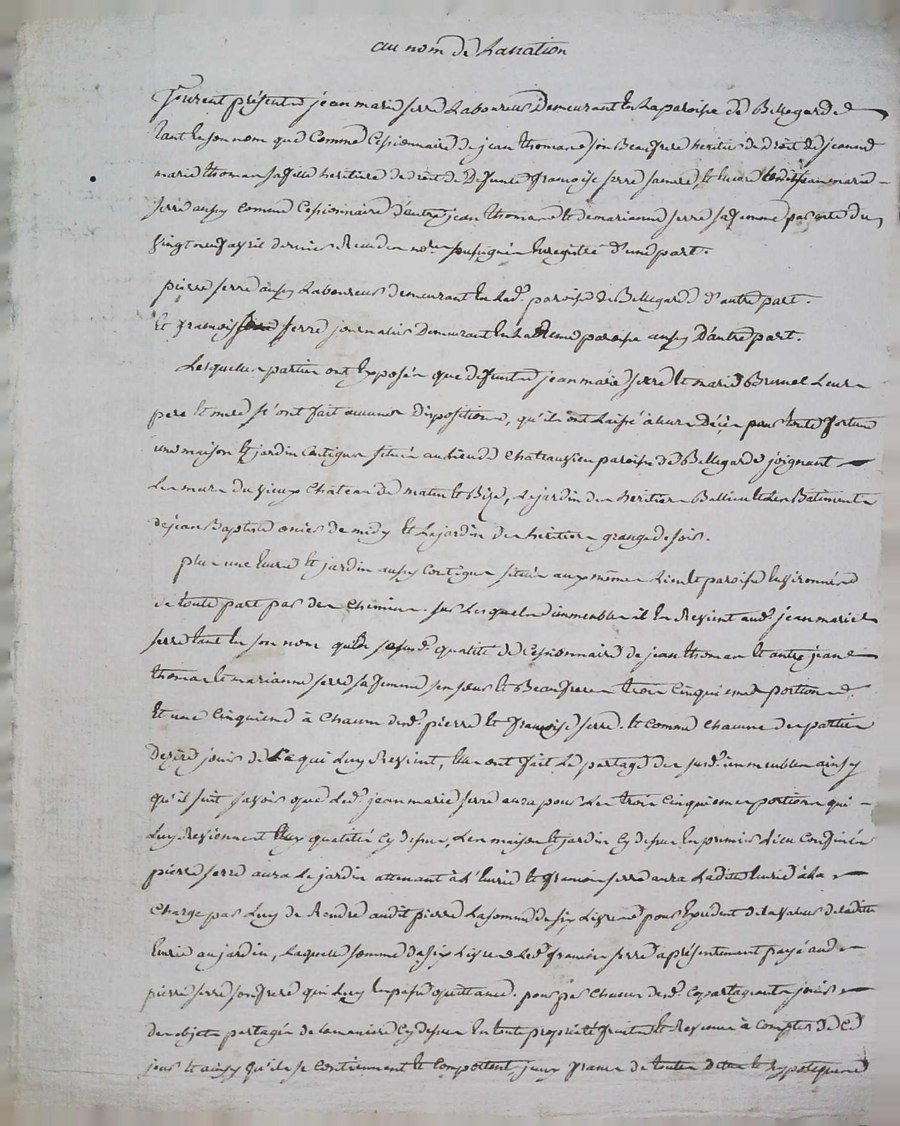 au nom de La nation
furent présents jean marie serre Laboureur Demeurant En La paroisse de Bellegarde
tant En son nom que Comme Cessionnaire de jean thomas son Beaufrere heritier de droit de jeanne
marie thomas sa fille heritiere de droit de Defunte françoise serre sa mere, Et Encore Ledit jean marie
serre aussy Comme Cessionnaire d'autre jean thomas Et de marianne serre sa femme par acte du
vingt neuf avril dernier Reçu du nore soussigné Enregistré d'une part.
pierre serre aussy Laboureur demeurant En Lade. paroisse de Bellegarde d'autre part.
Et françois serre journalier Demeurant En La même paroisse aussy D'autre part.
Lesquelles parties ont Exposées que defunts jean marie serre Et marie Brunel Leurs
pere Et mere n'ont fait aucunes Dispositions, qu'ils ont Laissé à leur Décès pour toute fortune
une maison Et jardin Contigus situés au lieu de Chattauvieu paroisse de Bellegarde joignant
Les murs du vieux Chateau de matin Et Bize, Le jardin des heritiers Et Les Batiments
de jean Baptiste de midy Et Le jardin des héritiers grange de soir.
plus une Ecurie Et jardin aussy Contigus situés aux mêmes Lieu Et paroisse Environnés
de toute part par des Chemins. sur Lesquels immeubles il En Revient aud. jean marie
serre tant En son nom qu'En sa susd. qualité de Cessionnaire de jean thomas Et autre jean
thomas Et marianne serre sa femme ses sœur Et Beaufreres trois Cinquiemes portions.
Et une Cinquieme à Chacun desd. pierre Et françois serre. Et comme Chacune des parties
Desire jouir de Ce qui Luy Revient, Elles ont fait Le partage des susd. immeubles ainsy
qu'il suit savoir que Led. jean marie serre aura pour Les trois Cinquiemes portions qui
Luy Reviennent Aux qualités Cy dessus, Les maison Et jardin Cy dessus En premier Lieu Confinés
pierre serre aura Le jardin attenant à L'Ecurie Et françois serre aura Ladite Ecurie à La
Charge par Luy de Rendre audit pierre La somme de six Livres pour Excedent de la valeur de ladite
Ecurie au jardin, Laquelle somme de six Livres Led. françois serre a présentement payé aud.
pierre serre son frere qui Luy En passe quittance. pour par Chacun desd. Copartageants jouir
des objets partagés de la maniere Cy dessus En toute propriété fruits Et Revenus à Compter de Ce
jour Et ainsy qu'ils se Contiennent Et Comportent, francs de toutes dettes Et hypoteques